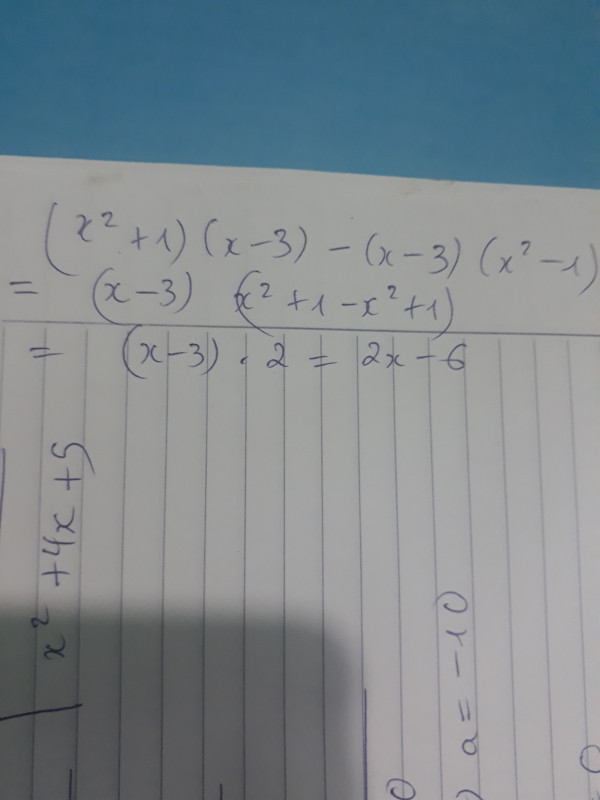 (x² + 1) (x - 3) - (x - 3) (x² - 1)
= (x - 3) (x² + 1 - x² + 1)
= (x - 3) · 2 = 2x - 6
x² + 4x + 5
a = -10